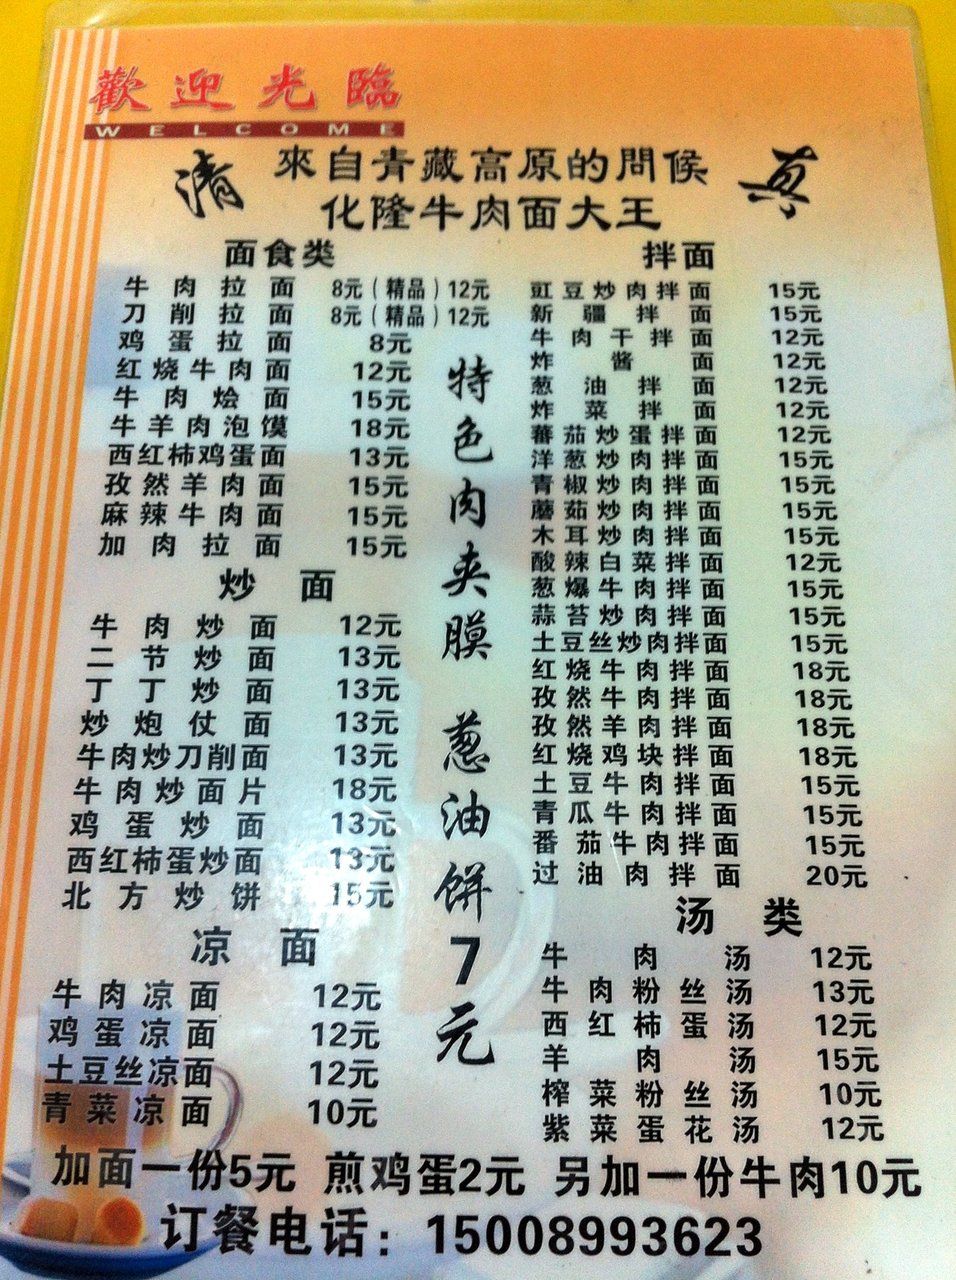 歡迎光臨
WELCOME
清 來自青藏高原的問候 真
化隆牛肉面大王
面食类
牛肉拉面 8元（精品）12元
刀削拉面 8元（精品）12元
鸡蛋拉面 8元
红烧牛肉面 12元
牛肉烩面 15元
牛羊肉泡馍 18元
西红柿鸡蛋面 13元
孜然羊肉面 15元
麻辣牛肉面 15元
加肉拉面 15元
炒面
牛肉炒面 12元
二节炒面 13元
丁丁炒面 13元
炒炮仗面 13元
牛肉炒刀削面 13元
牛肉炒面片 18元
鸡蛋炒面 13元
西红柿蛋炒面 13元
北方炒饼 15元
凉面
牛肉凉面 12元
鸡蛋凉面 12元
土豆丝凉面 12元
青菜凉面 10元
特色肉夹膜 葱油饼7元
拌面
豇豆炒肉拌面 15元
新疆拌面 15元
牛肉干拌面 12元
炸酱面 12元
葱油拌面 12元
炸菜拌面 12元
蕃茄炒蛋拌面 12元
洋葱炒肉拌面 15元
青椒炒肉拌面 15元
蘑茹炒肉拌面 15元
木耳炒肉拌面 15元
酸辣白菜拌面 12元
葱爆牛肉拌面 15元
蒜苔炒肉拌面 15元
土豆丝炒肉拌面 15元
红烧牛肉拌面 18元
孜然牛肉拌面 18元
孜然羊肉拌面 18元
红烧鸡块拌面 18元
土豆牛肉拌面 15元
青瓜牛肉拌面 15元
番茄牛肉拌面 15元
过油肉拌面 20元
汤类
牛肉汤 12元
牛肉粉丝汤 13元
西红柿蛋汤 12元
羊肉汤 15元
榨菜粉丝汤 10元
紫菜蛋花汤 12元
加面一份5元 煎鸡蛋2元 另加一份牛肉10元
订餐电话：15008993623